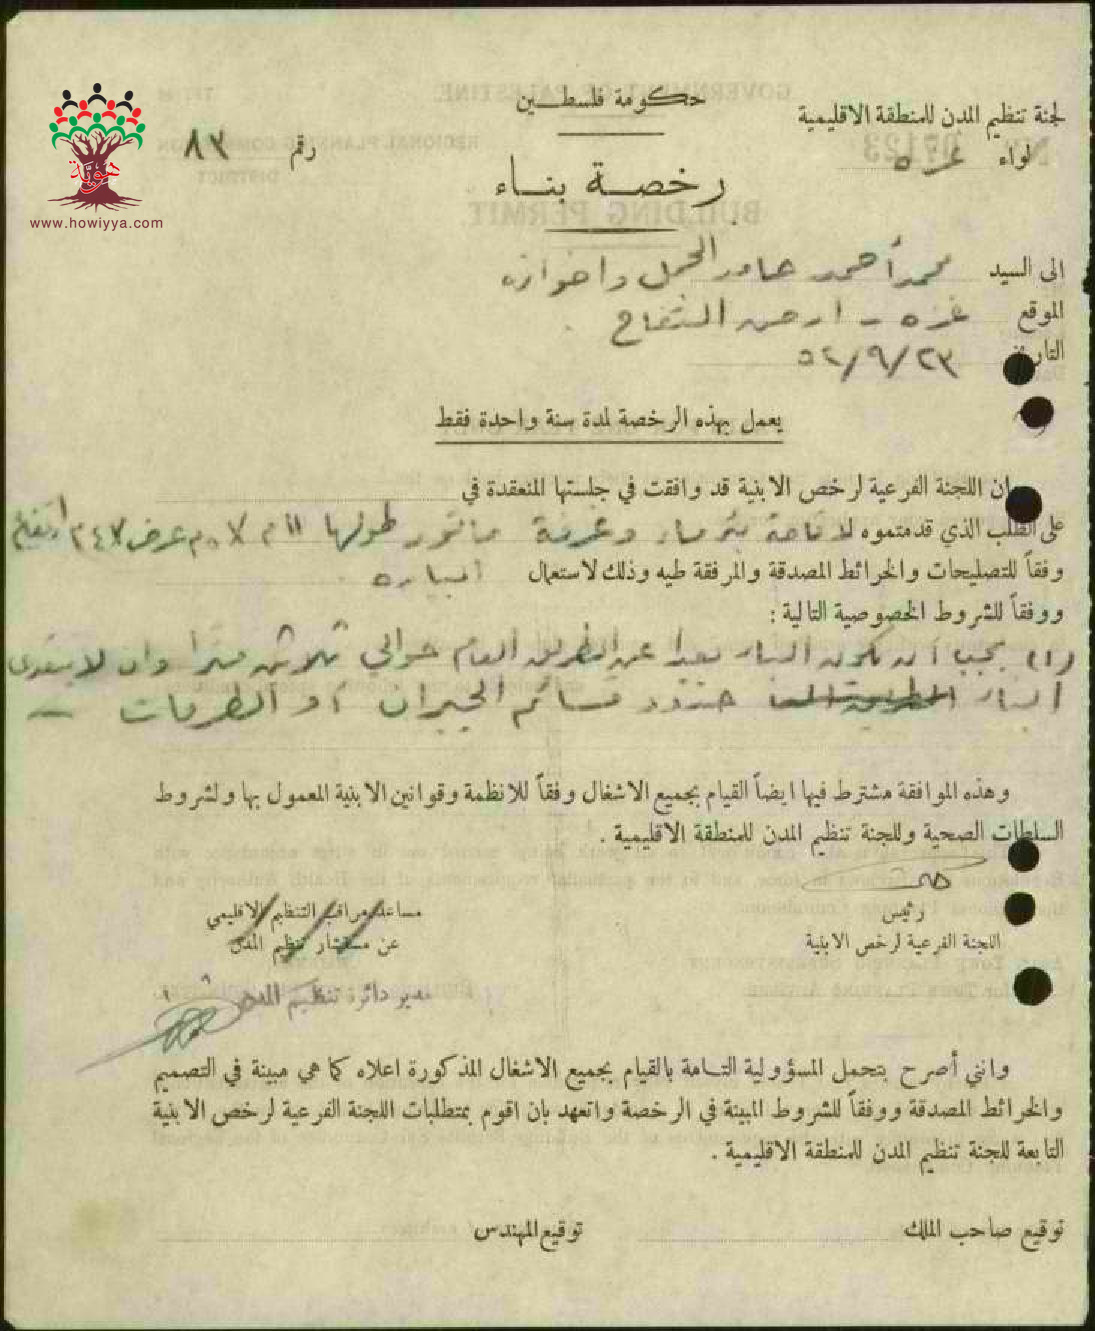 حكومة فلسطين
لجنة تنظيم المدن للمنطقة الاقليمية
لواء غزه
رقم ٨٣
هوية
www.howiyya.com
رخصة بناء
الى السيد محمد أحمد حامد الجمل واخوانه
الموقع غزه - ارض التفاح
التاريخ ٥٢/٩/٢٣
يعمل بهذه الرخصة لمدة سنة واحدة فقط
ان اللجنة الفرعية لرخص الابنية قد وافقت في جلستها المنعقدة في
على الطلب الذي قدمتموه لاقامة بئر ماء وغرفة ماتور طولها ١١ م عرض
وفقاً للتصليحات والخرائط المصدقة والمرفقة طيه وذلك لاستعمال
ووفقاً للشروط الخصوصية التالية :
(١) يجب أن يكون البناء بعيدا عن الطريق العام حوالي ثلاثين مترا وان لا يتعدى
البناء حدود قسائم الجيران أو الطرقات -
وهذه الموافقة مشترط فيها ايضاً القيام بجميع الاشغال وفقاً للانظمة وقوانين الابنية المعمول بها ولشروط
السلطات الصحية وللجنة تنظيم المدن للمنطقة الاقليمية .
رئيس
اللجنة الفرعية لرخص الابنية
مساعد مراقب التنظيم الاقليمي
عن مستشار تنظيم المدن
مدير دائرة تنظيم المدن
وانني أصرح بتحمل المسؤولية التامة بالقيام بجميع الاشغال المذكورة اعلاه كما هي مبينة في التصميم
والخرائط المصدقة ووفقاً للشروط المبينة في الرخصة واتعهد بان اقوم بمتطلبات اللجنة الفرعية لرخص الابنية
التابعة للجنة تنظيم المدن للمنطقة الاقليمية .
توقيع صاحب الملك
توقيع المهندس